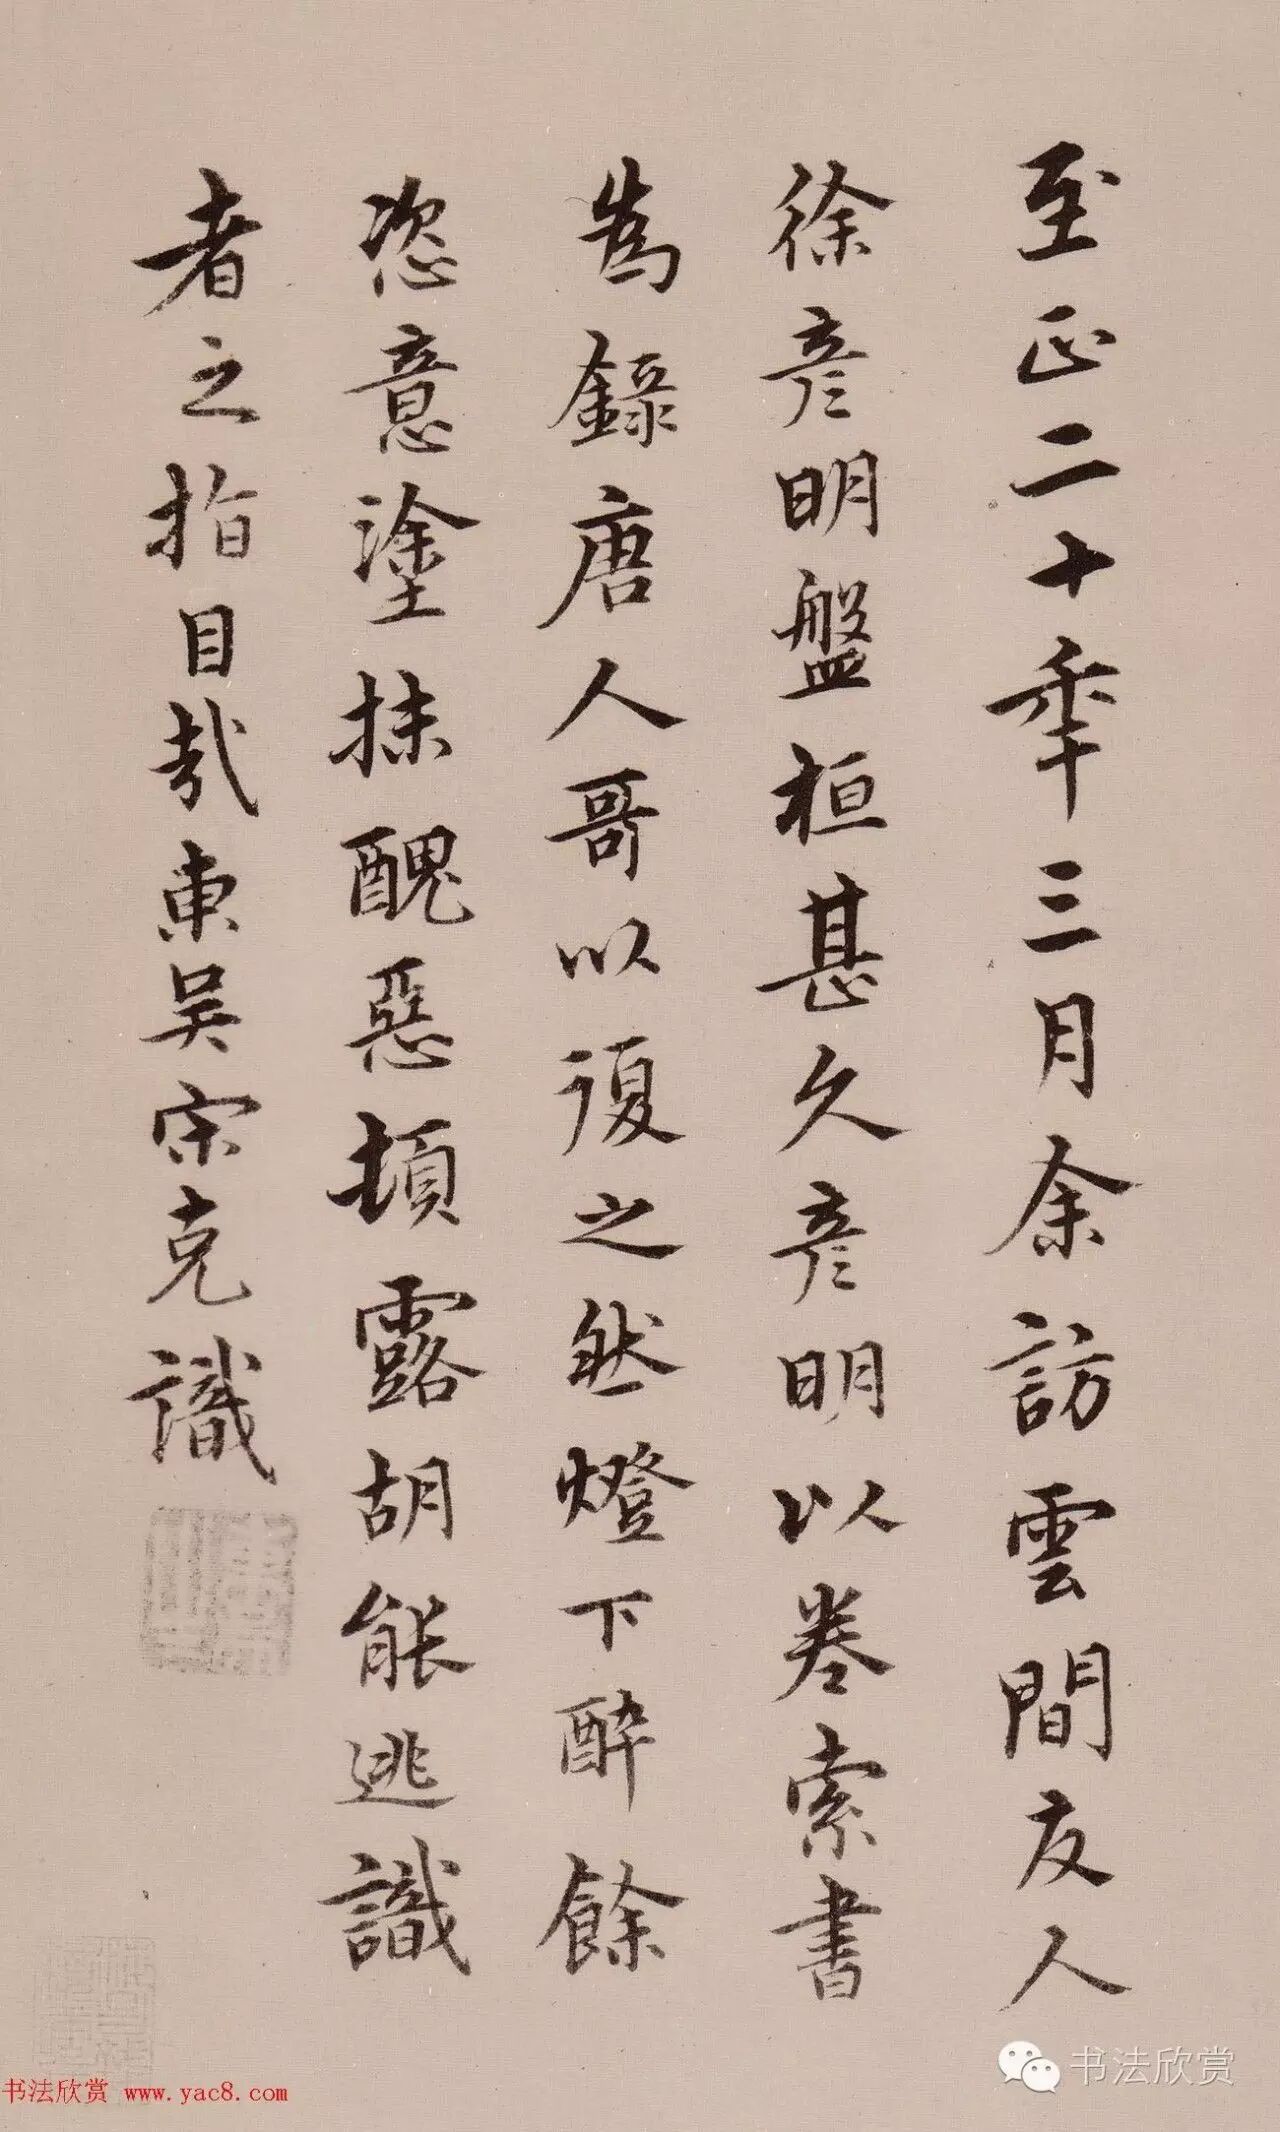 至正二十年三月余訪雲間友人
徐彥明盤桓甚久彥明以卷索書
為錄唐人哥以復之然燈下醉餘
恣意塗抹醜惡頓露胡能逃識
者之指目哉東吳宋克識
书法欣赏 www.yac8.com
书法欣赏